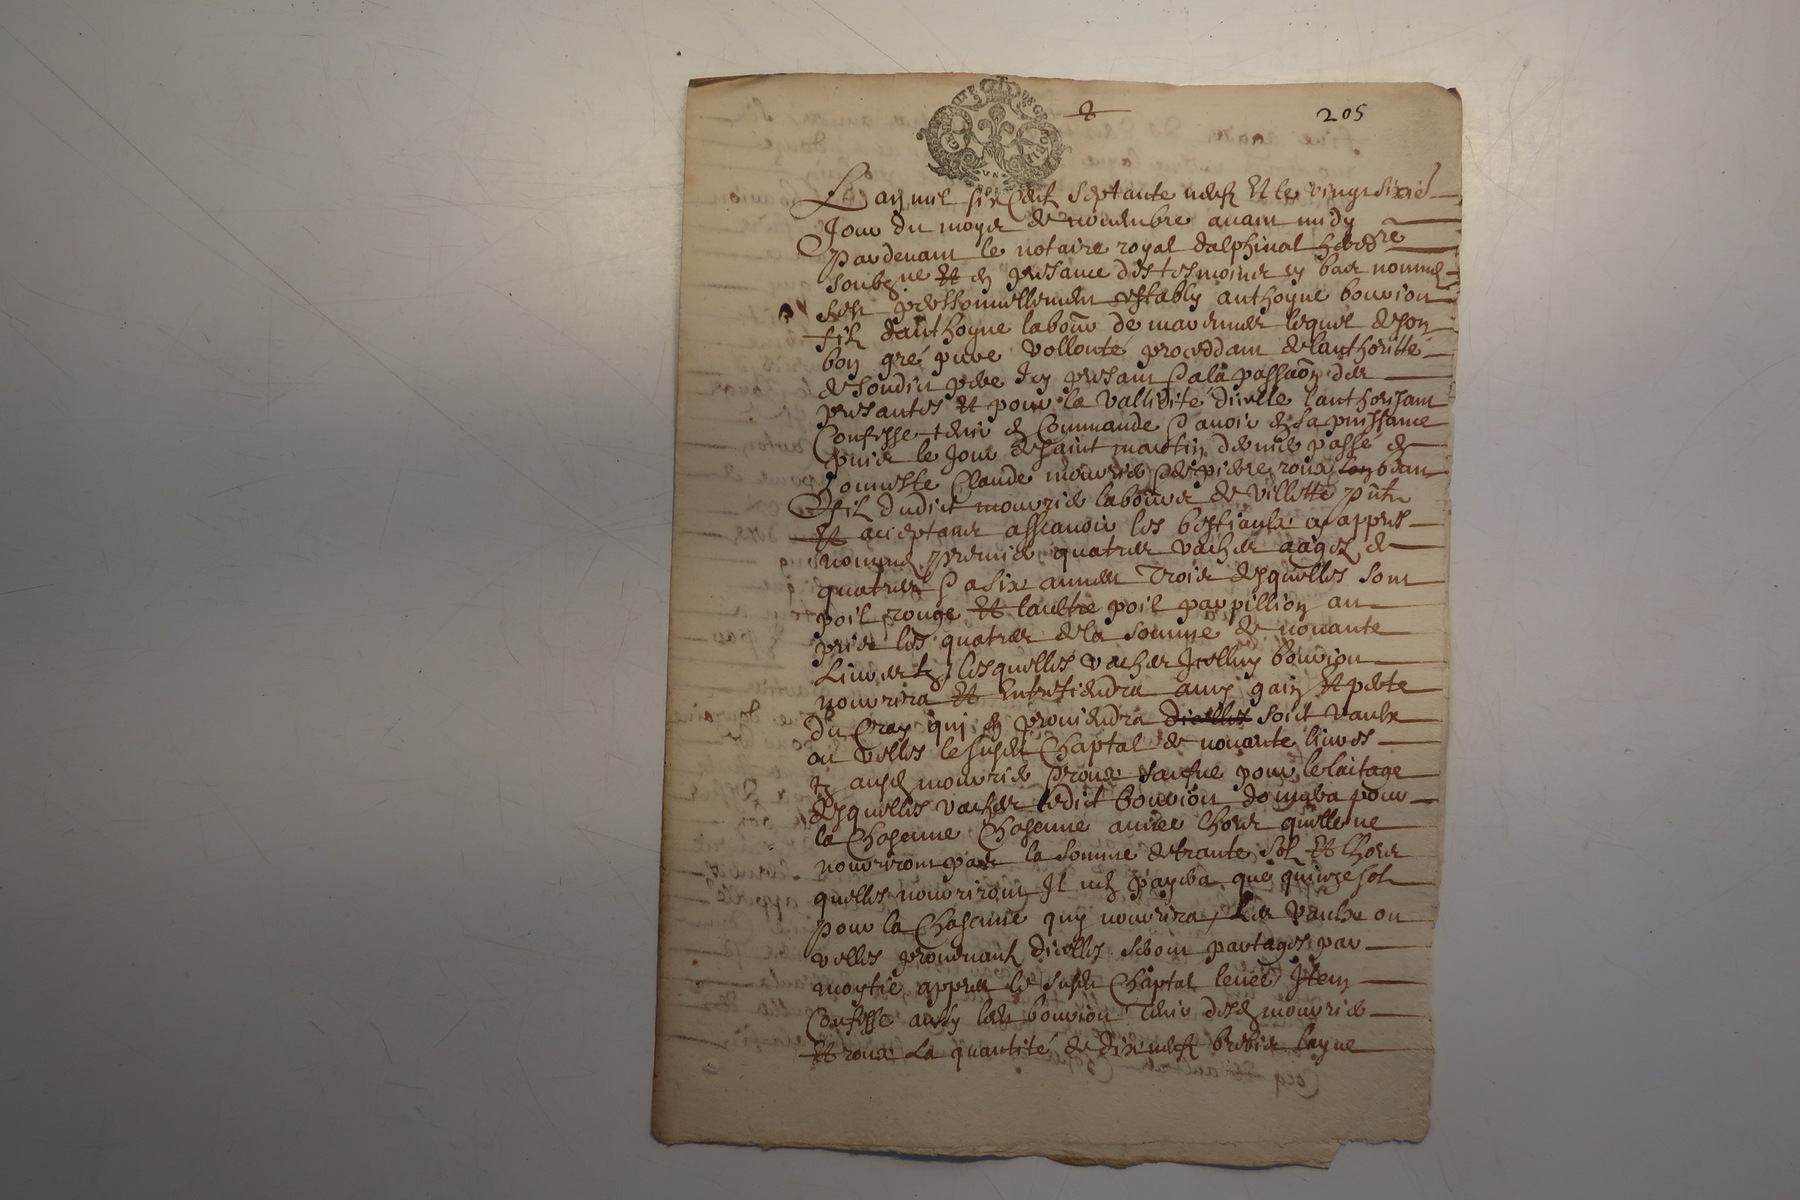 205
Lan mil six cent septante neuf Et le vingt sixie
Jour du moys de novembre avant midy
Pardevant le notaire royal dalphinal heredre
soubzne Et en presance des tesmoins en bas nommes
sest personnellement estably anthoyne bouvion
fils danthoyne labour de lequel de son
bon gré pure vollonté proceddant de lauthoritté
de sondit pere Icy presant a la passaon des
presantes Et pour la vallidité dicelle lauthorisant
Confesse tenir en Commande et a sa puissance
puis le Jour de saint martin dernier passé de
honneste Claude et pierre roux son beau
fil dudict labour de villette pnt
Et acceptant asscavoir les bestiaulx cy appres
nommes premier quatres vaches aages de
quatres a six annees Trois desquelles sont
poil rouge Et laultre poil parpillion au
pris les quatres de la somme de nonante
Livres tz lesquelles vaches Icelluy bouvion
nourrira Et Entretiendra aux gain Et perte
du Croy qui en proviendra dicelles soict vaulx
ou velles le susdt Chaptal de nonante livres
roux sauf que pour le laitage
desquelles vaches ledict bouvion donnera pour
la Chascune Chascune annee lhors quelle ne
nourriront pas la somme de trante sols Et lhors
quelles nourriront Il ne payera que quinze sols
pour la Chascune quy nourrira, Les vaulx ou
velles provenant dicelles seront partages par
moytie appres le susdt Chaptal levé Item
Confesse aussy ledt bouvion Tenir desd
Et roux La quantité de dix neuf brebis layne